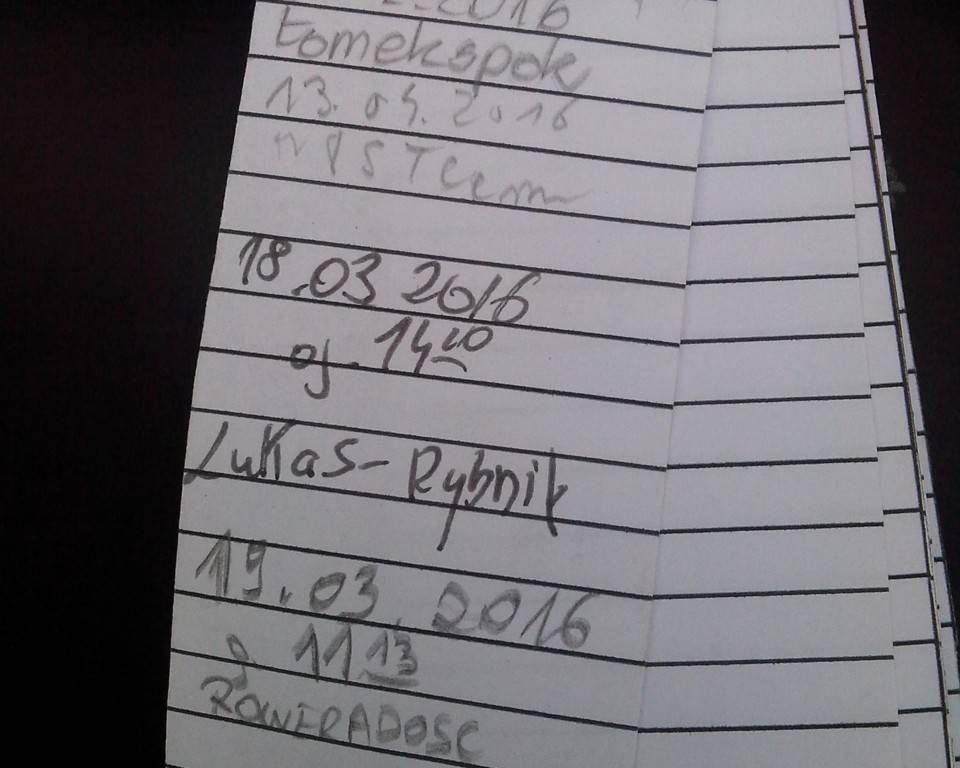 2016
tomekspok
13.03.2016
18.03 2016
g. 14 20
Lukas-Rybnik
19.03.2016
g. 11 13
ROWERADOSC